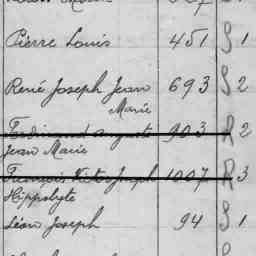 Pierre Louis 451 S 1
René Joseph Jean 693 S 2
Marie
Ferdinand Auguste 903 R 2
Jean Marie
François Victor Joseph 1007 R 3
Hippolyte
Léon Joseph 94 S 1